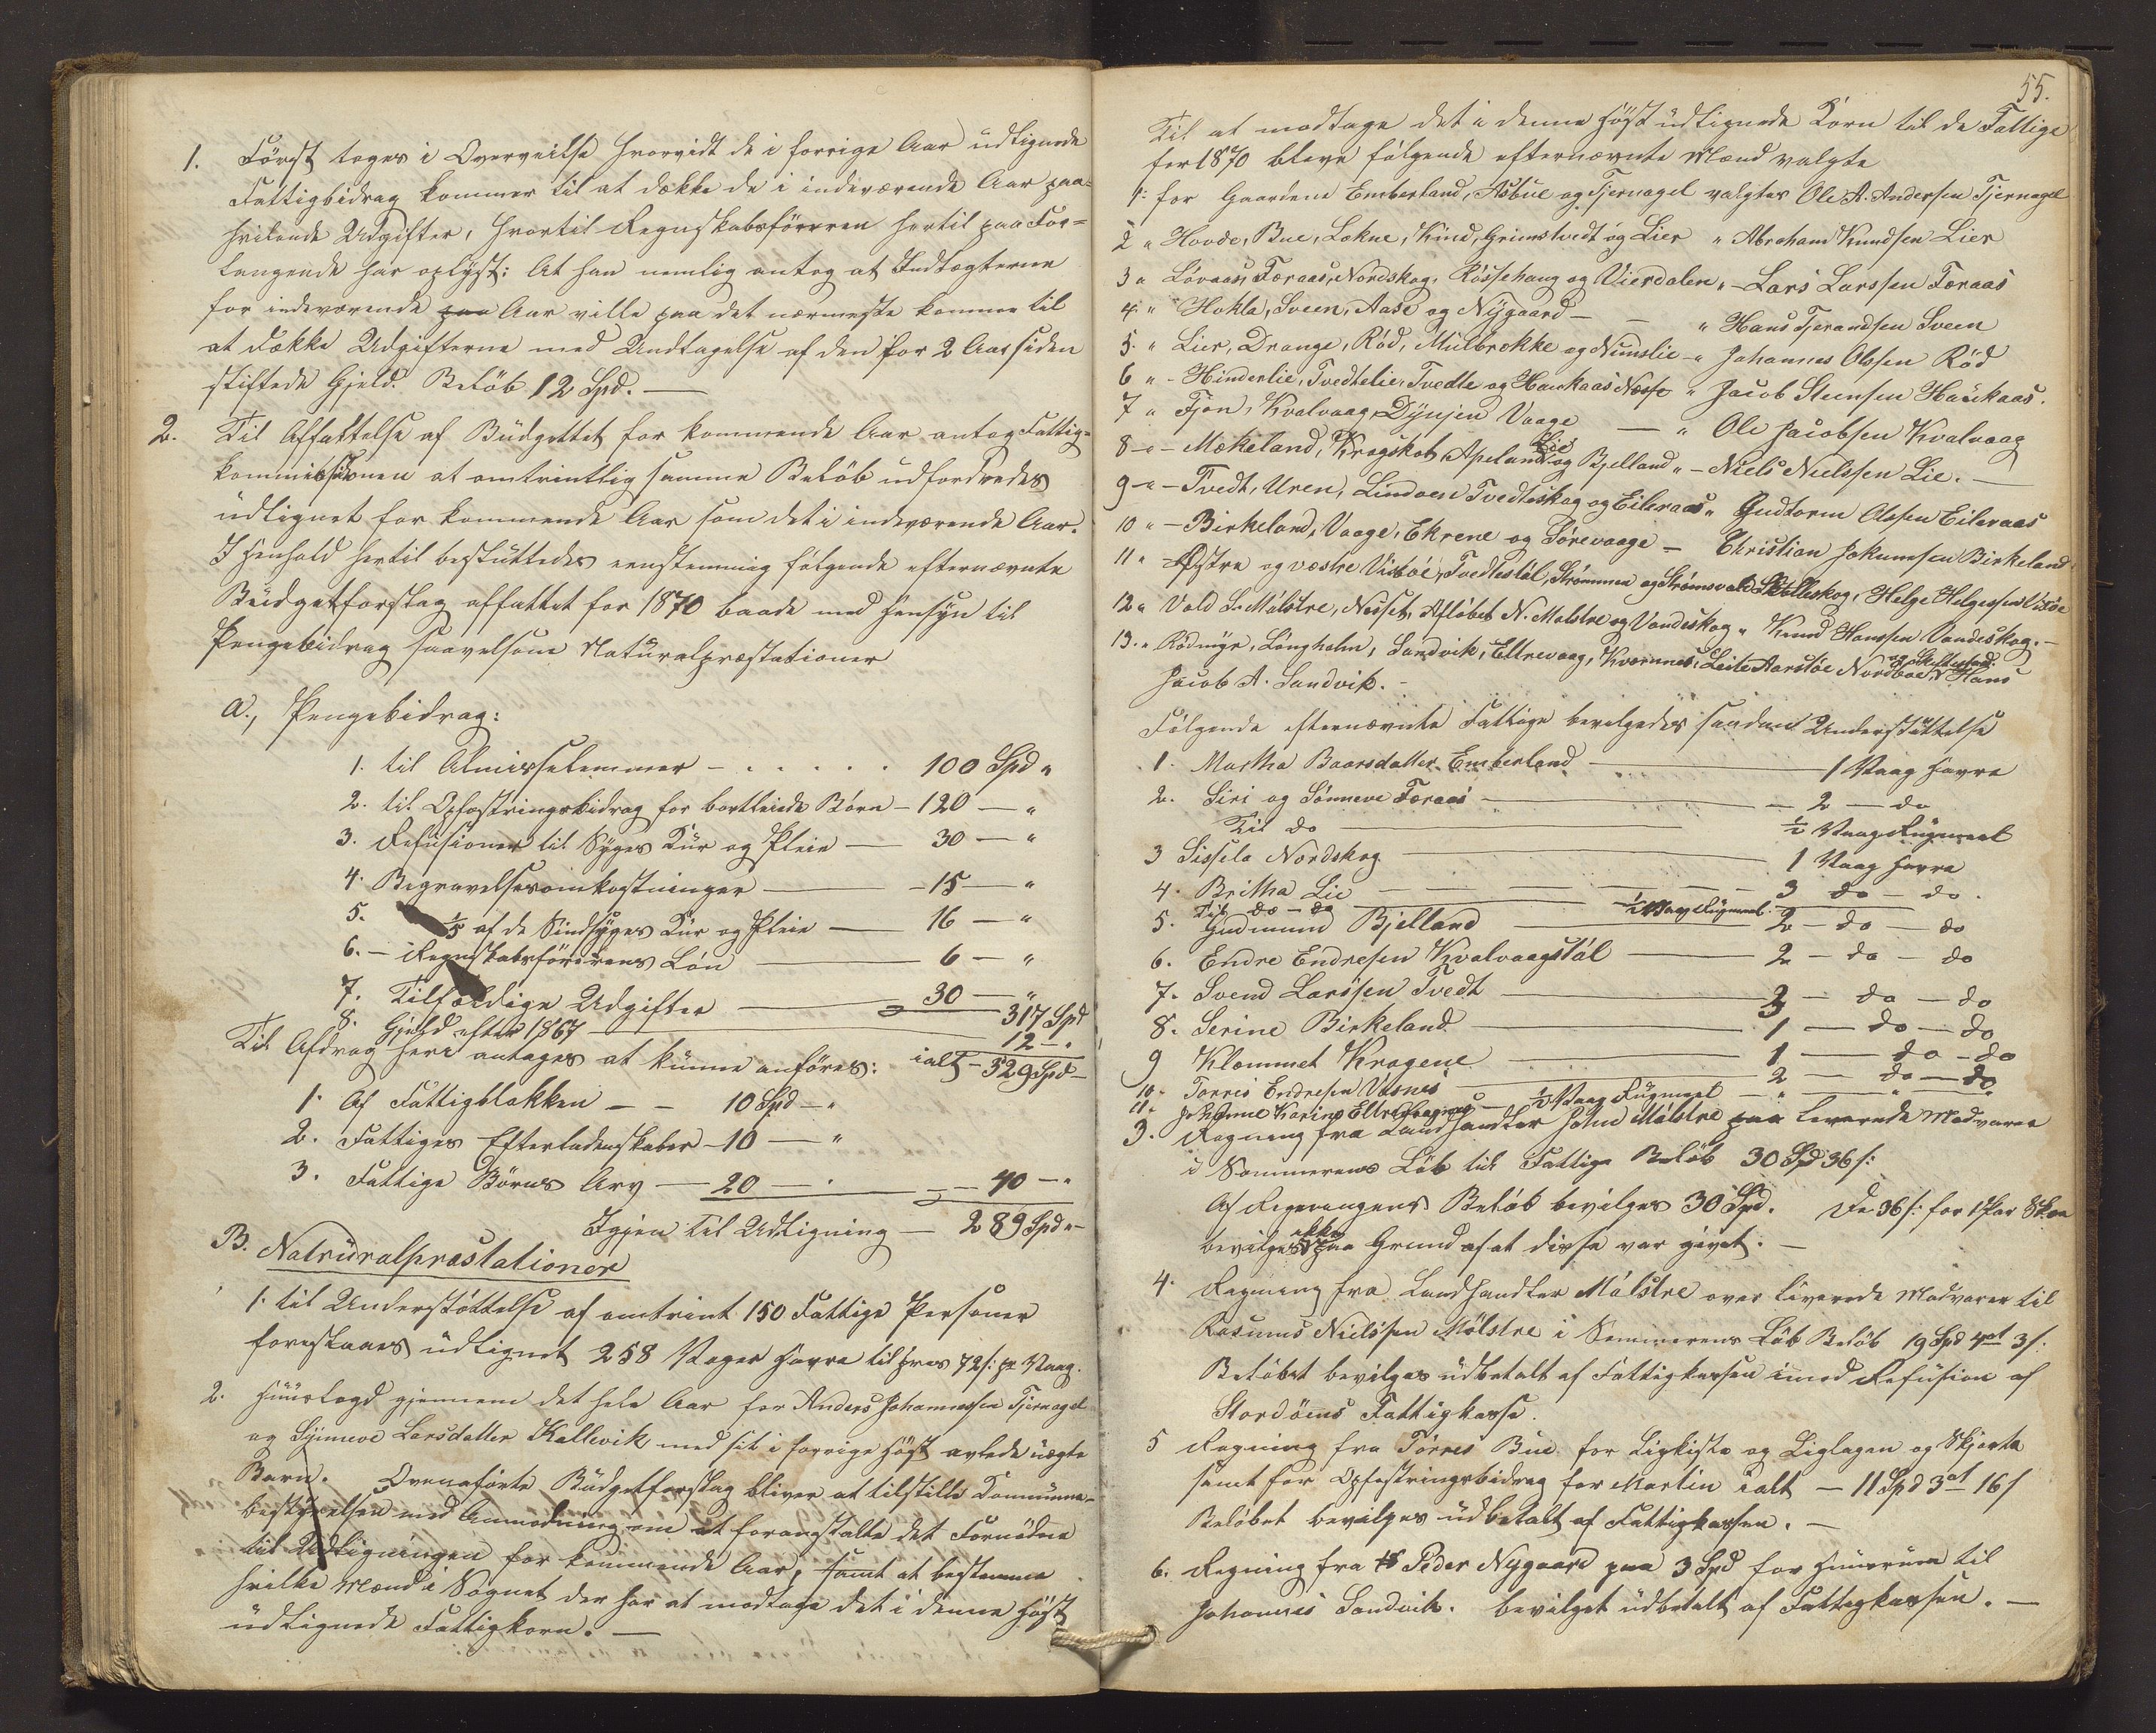 1. Först toges i Overveielse hvorvidt de i forrige Aar udlignede
Fattigbidrag kommer til at dække de i indeværende Aar paa-
hvilende Udgifter, hvortil Regnskabsföreren hertil paa For-
langende har oplyst: At han nemlig antog at Indtægterne
for indeværende paa Aar ville paa det nærmeste komme til
at dække Udgifterne med Undtagelse af den for 2 Aar siden
stiftede Gjeld. Beløb 12 Spd. —
2. Til Affattelse af Büdgettet for kommende Aar antog Fattig-
kommissionen at omtrintlig samme Beløb udfordredes
üdlignet for kommende Aar som det i indeværende Aar.
I Henhold hertil besluttedes eenstemmig følgende efternævnte
Büdgetforslag affattet for 1870 baade med Hensyn til
Pengebidrag saavelsom Naturalpræstationer
a., Pengebidrag:
1. til Almisselemmer - . . . . . 100 Spd "
2. til Opfostringsbidrag for bortleiede Börn - 120 — "
3. Refusioner til Syges Kür og Pleie — 30 — "
4. Begravelsesomkostninger — 15 — "
5. 1/5 af de Sindsyges Kür og Pleie — 16 — "
6. - Regnskabsförerens Lön — 6 — "
7. Tilfældige Udgifter — 30 — "
317 Spd
8. Gjeld efter 1867 — 12 — "
Til Afdrag heri antages at künne anföres: ialt - 329 Spd -
1. Af Fattigblokken — — 10 Spd — "
2. Fattiges Efterladenskaber - 10 — "
3. Fattige Börns Arv — 20 — . — 40 — "
Igjen til Udligning — 289 Spd " -
B. Natruralpræstationer
1. til Understöttelse af omtrint 150 Fattige Personer
foreslaaes üdlignet 258 Vager Havre til Priis 72 s: pr Vaag.
2. Hüüslægd gjennem det hele Aar for Anders Johannessen Tjernagel
og Synneve Larsdatter Kallevik med sit i forrige Høst avlede üægte
Barn. Ovenaförte Büdgetforslag bliver at tilstille Kommune-
bestyrelsen med Anmodning om at foranstalte det Fornödne
til Udligningen for kommende Aar, samt at bestemme
hvilke Mænd i Sognet der har at modtage det i denne Høst
üdlignede Fattigkorn. —
55.
Til at modtage det i denne Høst üdlignede Korn til de Fattige
for 1870 bleve følgende efternævnte Mænd valgte
1. for Gaardene Emberland, Asbue og Tjernagel valgtes Ole A. Andersen Tjernagel
2 " Hovde, Bue, Lokne, Kind, Grimstvedt og Lier " Abraham Knudsen Lier
3 " Løvaas, Færaas, Nordskog, Røssehaug og Vierdalen " - Lars Larssen Færaas
4 " Hokla, Sveen, Aase og Nygaard — — " Hans Tjerandsen Sveen
5. " Lier, Drange, Rød, Mulbrekke og Numslie - " Johannes Olssen Rød
6 " - Hinderlie, Tvedtelie, Tvedte og Haukaas Næsse " Jacob Steensen Haukaas.
7 " Fjon, Kvalvaag, Dynjen Vaage — " Ole Jacobsen Kvalvaag
8 - " - Mækeland, Krogskot, Apeland Lie og Bjelland " - Niels Nielssen Lie. —
9 - " - Tvedt, Uren, Lindøen Tvedteskog og Eileraas " Gudtorm Olssen Eileraas
10 " - Birkeland, Vaage, Ekrene og Sørevaage — Christian Johannesen Birkeland
11 " - Østre og vestre Vistøe, Tvedtestøl, Strømmen og Strømsvold Skolleskog, Helge Helgessen Vistøe
12 " Vold S. Mølstre, Nesset, Afløbet N. Molstre og Vandeskog " Knud Hanssen Vandeskog. —
13. " Rødmyr, Longholm, Sandvik, Eltrevaag, Kvernnes, Leite Aarsløe Nordbøe og Skiftestad " Hans
Jacob A. Sandvik. -
Følgende efternævnte Fattige bevilgedes saadan Understüttelse
1. Martha Baarsdatter Emberland — 1 Vaag Havre
2. Siri og Sönneve Færaas — 2 — do
Til do — 1/2 Vaag Rügmeel
3 Sissela Nordskog — 1 Vaag Havre
4. Britha Lie — 3 do - do.
Til do - do — 1/2 Vaag Rügmeel.
5. Gudmund Bjelland — 2 - do - do
6. Endre Endresen Kvalvaagstöl — 2 - do - do
7. Svend Larssen Tvedt — 3 - do - do
8. Serine Birkeland — 1 — do - do
9 Klemmet Kragene — 1 — do - do
10. Torres Endresen Vasnes — 2 — do - do
11. Johanne Karine Eltrevaag — 1/2 Vaag Rügmeel — " — "
3. Regning fra Landhandler John Mölstre paa leverede Madvarer
i Sommerens Löb til Fattige Beløb 30 Spd 36 s:
Af Regningens Beløb bevilges 30 Spd. De 36 s: for 1 Par Skoe
bevilges ikke paa Grund af at disse var givet. —
4. Regning fra Landhandler Mölstre over leverede Madvarer til
Rasmus Nielssen Mölstre i Sommerens Löb Beløb 19 Spd 4 ort 3 s:
Beløbet bevilges üdbetalt af Fattigkassen imod Refüsion af
Stordöens Fattigkasse.
5 Regning fra Törres Bue for Ligkiste og Liglagen og Skjorte
samt for Opfostringsbidrag for Martin ialt — 11 Spd 3 ort 16 s
Beløbet bevilges üdbetalt af Fattigkassen. —
6. Regning fra Peder Nygaard paa 3 Spd for Hüüsrum til
Johannes Sandvik. bevilget üdbetalt af Fattigkassen. —